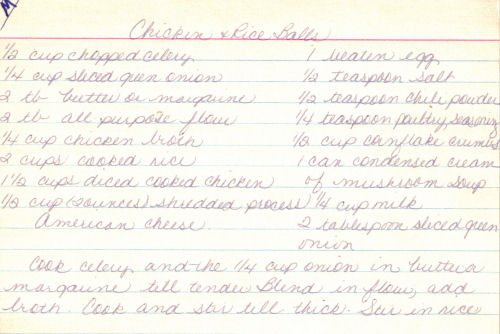 M
Chicken & Rice Balls
1/2 cup chopped celery
1/4 cup sliced green onion
2 tb butter or margarine
2 tb all purpose flour
1/4 cup chicken broth
2 cups cooked rice
1 1/2 cups diced cooked chicken
1/2 cup (2 ounces) shredded process
American cheese
1 beaten egg
1/2 teaspoon salt
1/2 teaspoon chili powder
1/4 teaspoon poultry seasoning
1/2 cup cornflake crumbs
1 can condensed cream
of mushroom soup
1/4 cup milk
2 tablespoon sliced green
onion
Cook celery and the 1/4 cup onion in butter or
margarine tell tender Blend in flour, add
broth. Cook and stir tell thick. Stir in rice